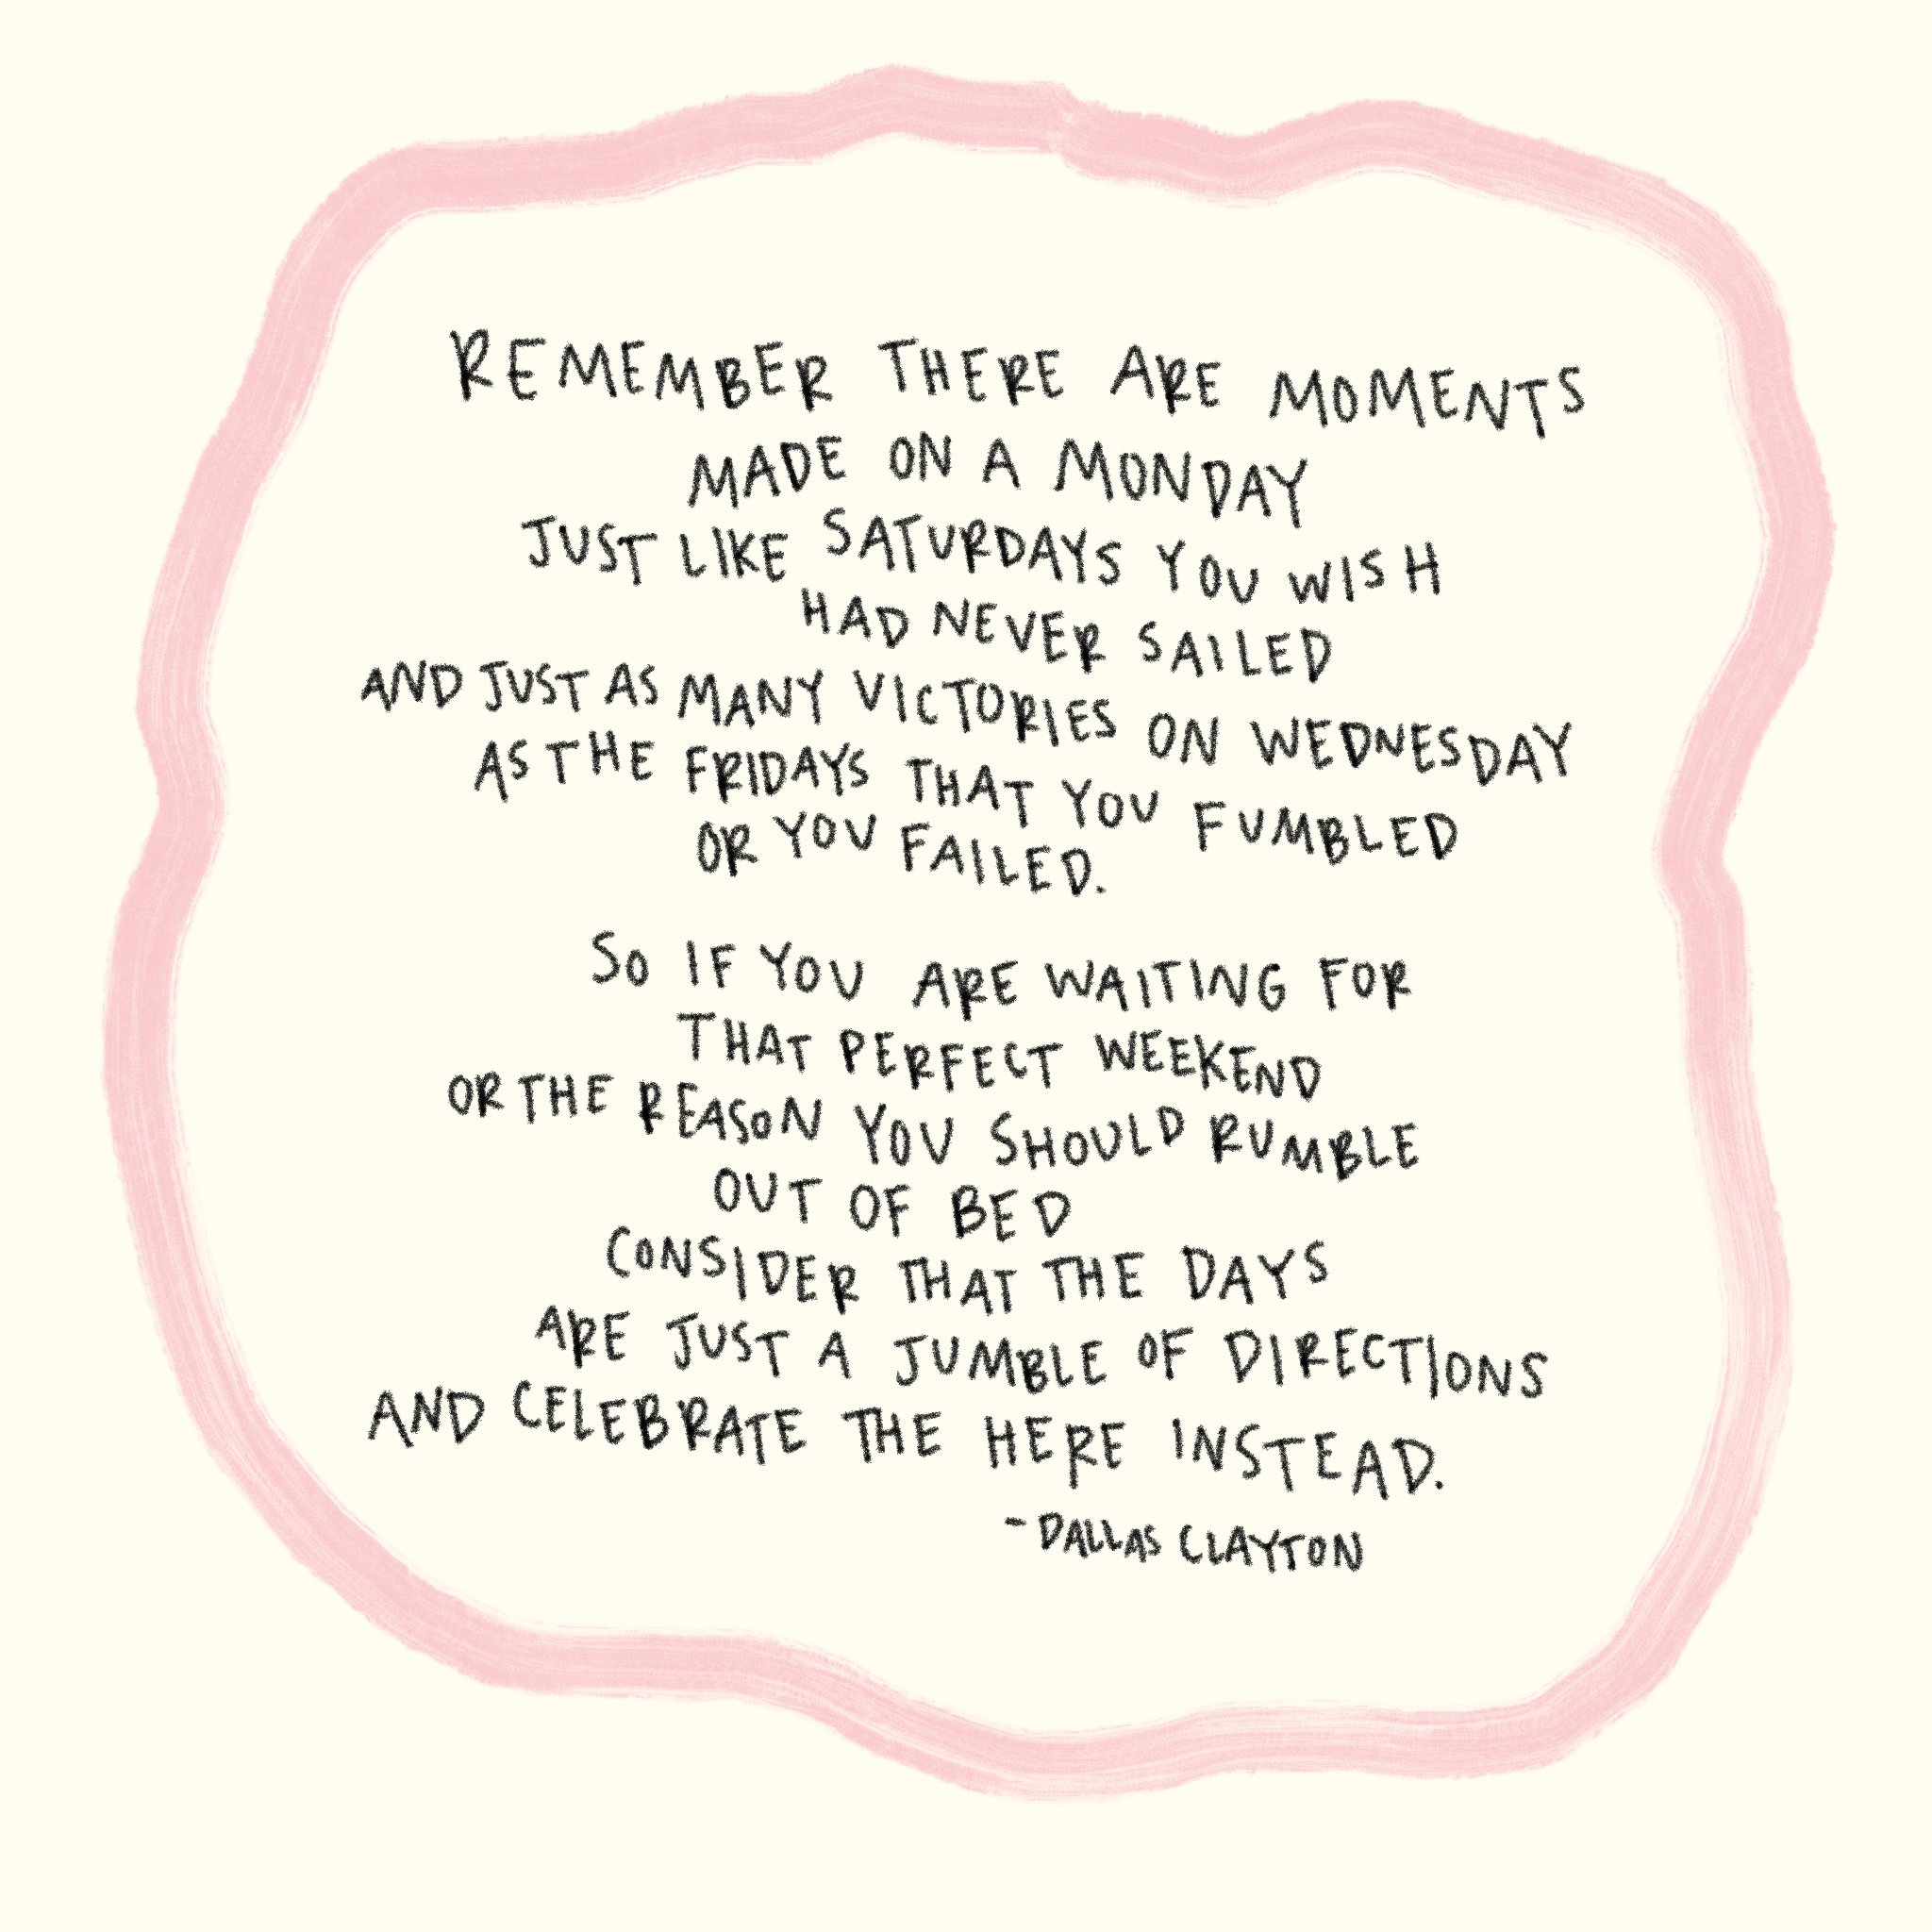 REMEMBER THERE ARE MOMENTS
MADE ON A MONDAY
JUST LIKE SATURDAYS YOU WISH
HAD NEVER SAILED
AND JUST AS MANY VICTORIES ON WEDNESDAY
AS THE FRIDAYS THAT YOU FUMBLED
OR YOU FAILED.
SO IF YOU ARE WAITING FOR
THAT PERFECT WEEKEND
OR THE REASON YOU SHOULD RUMBLE
OUT OF BED
CONSIDER THAT THE DAYS
ARE JUST A JUMBLE OF DIRECTIONS
AND CELEBRATE THE HERE INSTEAD.
-DALLAS CLAYTON